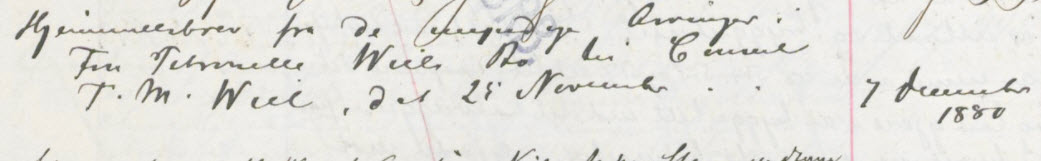 Hjemmelsbrev fra de myndige Arvinger i
Fru Petronelle Wiels Bo til Consul
T. M. Wiel, dat 25 November . . 7 December
1880